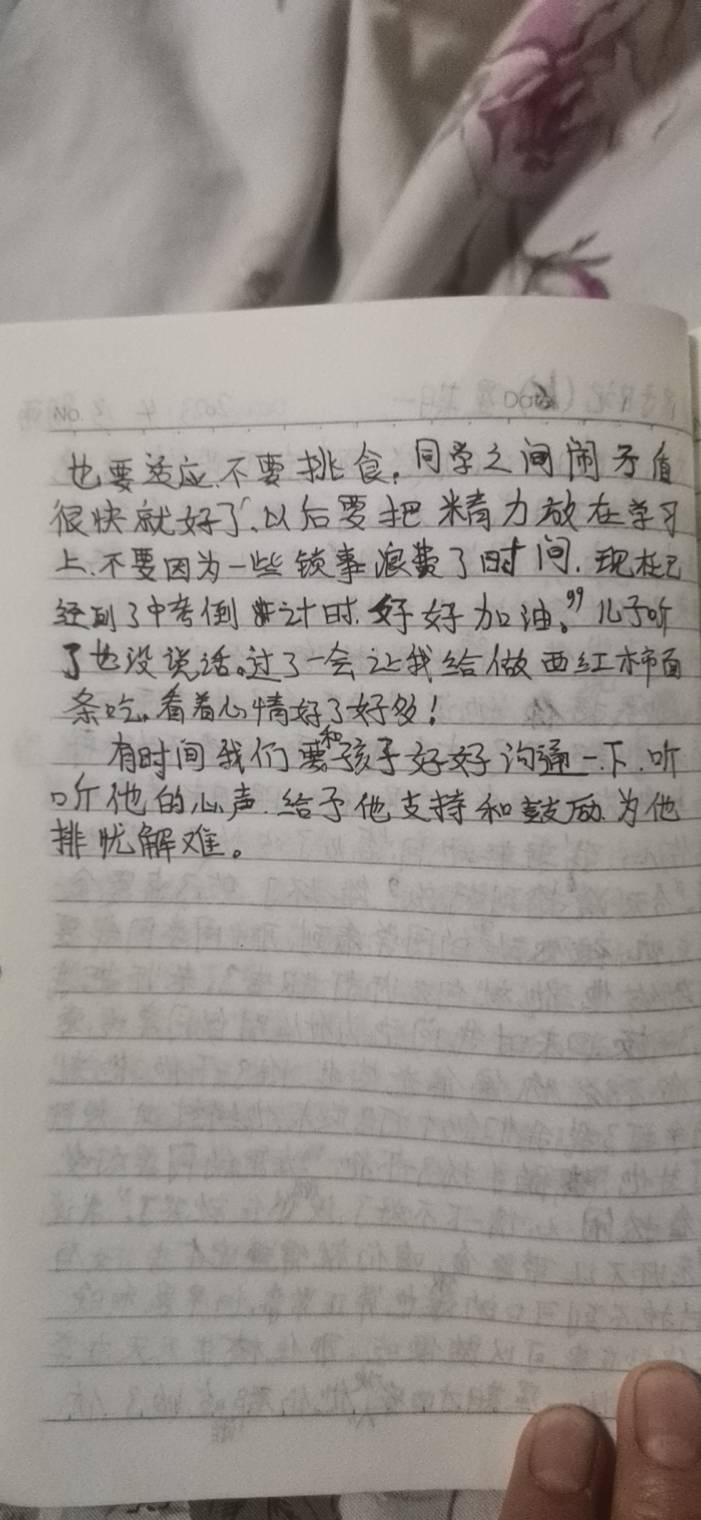 No. Date
也要适应、不要挑食。同学之间闹矛盾
很快就好了、以后要把精力放在学习
上、不要因为一些锁事浪费了时间. 现在已
经到了中考倒计时. 好好加油。”儿子听
了也没说话。过了一会让我给做西红柿面
条吃。看着心情好了好多!
有时间我们要和孩子好好沟通一下. 听
听他的心声. 给予他支持和鼓励. 为他
排忧解难。